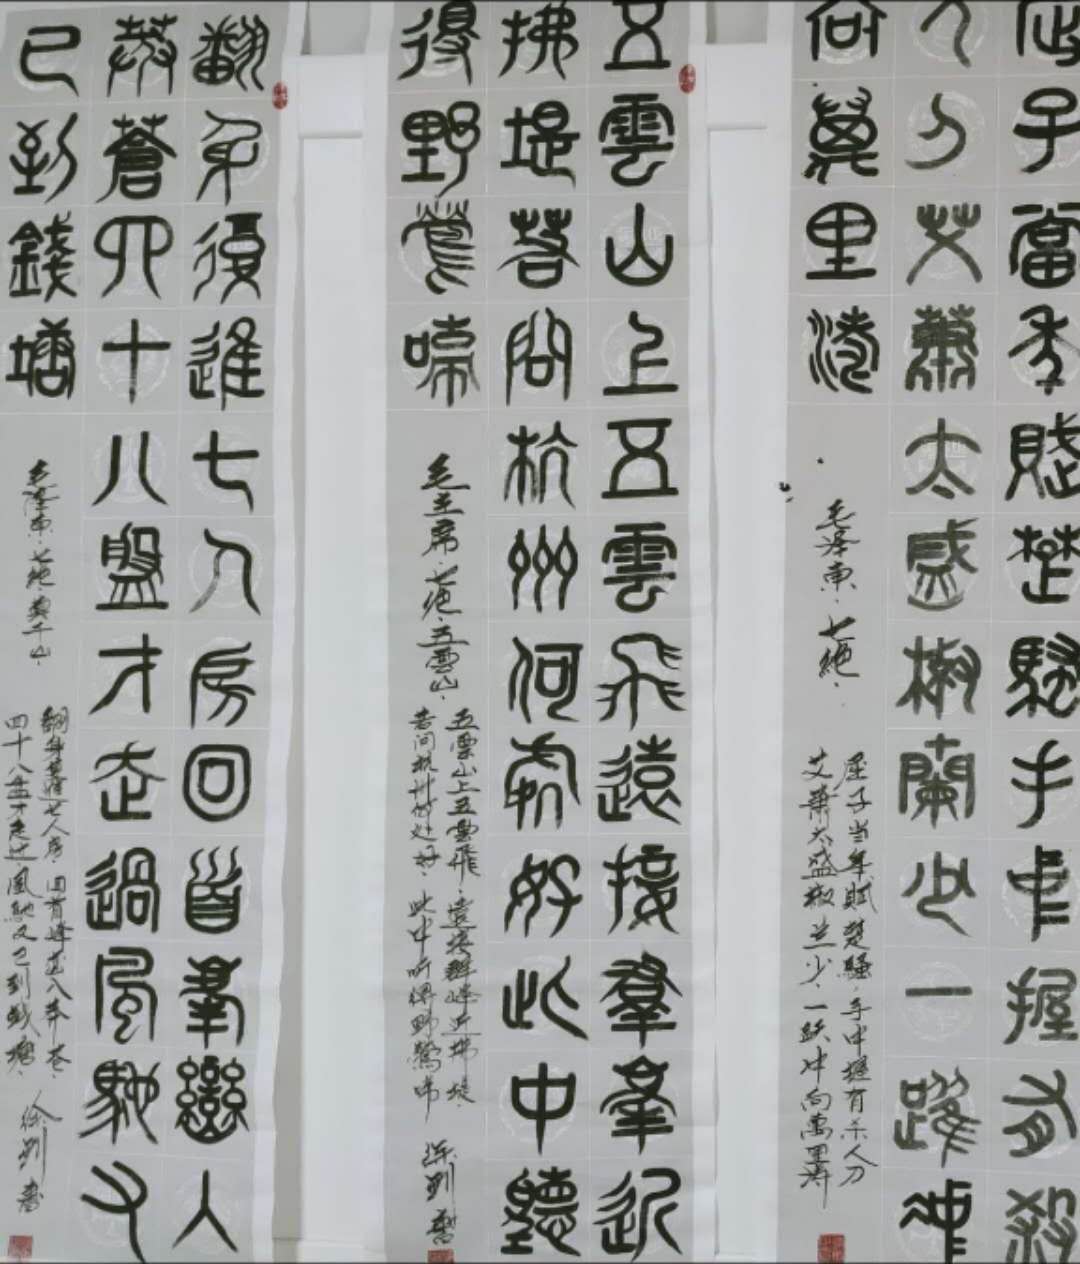 屈子當年賦楚騷手中握有殺
人刀艾蕭太盛椒蘭少一躍沖
向萬里濤
毛泽东、七絕、
屈子当年賦楚騷、手中握有杀人刀
艾萧太盛椒兰少、一跃冲向萬里涛
五雲山上五雲飛遠接羣峯近
拂堤若問杭州何處好此中聽
得野鶯啼
毛主席、七绝、五雲山、
五雲山上五雲飛、遠接群峰近拂堤、
若问杭州何处好、此中听得野鶯啼
書
翻身復進七人房回首羣巒入
莽蒼四十八盤才走過風馳又
已到錢塘
毛泽东、七绝、莫干山、
翻身復進七人房、回首峰峦入莽苍、
四十八盘才走过、風馳又已到钱塘、
書